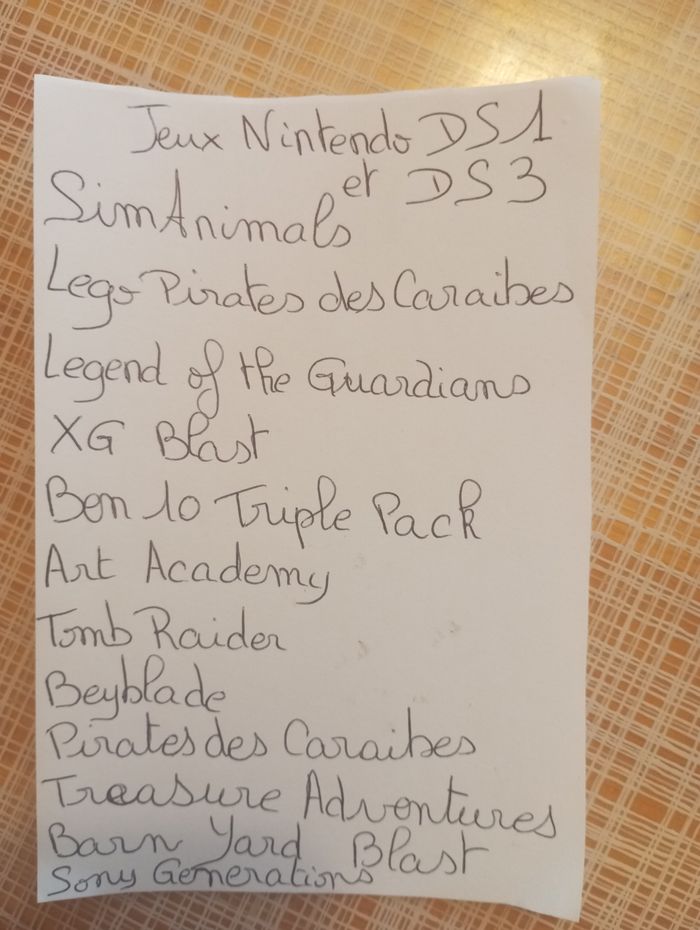 Jeux Nintendo DS1
et DS3
SimAnimals
Lego Pirates des Caraibes
Legend of the Guardians
XG Blast
Ben 10 Triple Pack
Art Academy
Tomb Raider
Beyblade
Pirates des Caraibes
Treasure Adventures
Barn Yard Blast
Sony Generations